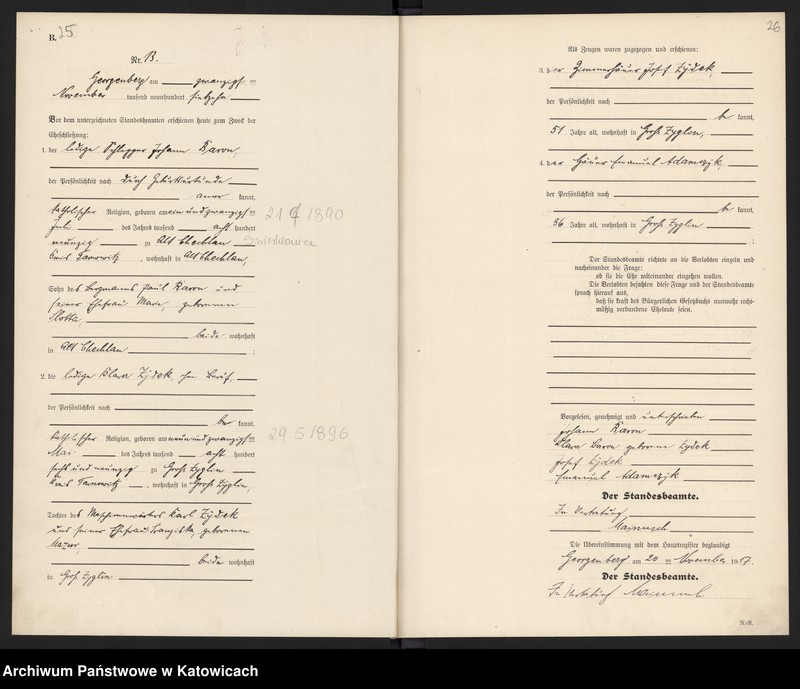 B. 25
Nr. 13.
Georgenberg am zwanzigsten
November tausend neunhundert siebzehn
Vor dem unterzeichneten Standesbeamten erschienen heute zum Zweck der
Eheschließung:
1. der ledige Schlepper Johann Baron,
der Persönlichkeit nach durch Geburtsurkunde
aner kannt,
katholischer Religion, geboren am ein und zwanzigsten 21 1890
Juli des Jahres tausend acht hundert
neunzig zu Alt Chechlau
Kreis Tarnowitz, wohnhaft in Alt Chechlau,
Sohn des Bergmanns Paul Baron und
seiner Ehefrau Marie, geborenen
beide wohnhaft
in Alt Chechlau ;
2. die ledige Klara Zydek, ohne Beruf,
der Persönlichkeit nach
be kannt,
katholischer Religion, geboren am neun und zwanzigsten 29 5 1896
Mai des Jahres tausend acht hundert
sechs und neunzig zu Groß Zyglin
Kreis Tarnowitz, wohnhaft in Groß Zyglin,
Tochter des Maschinenwärters Karl Zydek
und seiner Ehefrau Franziska, geborenen
Mazur,
beide wohnhaft
in Groß Zyglin
26
Als Zeugen waren zugezogen und erschienen:
3. der Zimmerhäuer Josef Zydek,
der Persönlichkeit nach
be kannt,
51 Jahre alt, wohnhaft in Groß Zyglin,
4. der Häuer Emanuel Adamczyk,
der Persönlichkeit nach
be kannt,
36 Jahre alt, wohnhaft in Groß Zyglin
Der Standesbeamte richtete an die Verlobten einzeln und
nacheinander die Frage:
ob sie die Ehe miteinander eingehen wollen.
Die Verlobten bejahten diese Frage und der Standesbeamte
sprach hierauf aus,
daß sie kraft des Bürgerlichen Gesetzbuchs nunmehr recht-
mäßig verbundene Eheleute seien.
Vorgelesen, genehmigt und unterschrieben
Johann Baron
Klara Baron geborene Zydek
Josef Zydek
Emanuel Adamczyk
Der Standesbeamte.
In Vertretung
Die Übereinstimmung mit dem Hauptregister beglaubigt
Georgenberg am 20 ten November 1917.
Der Standesbeamte.
In Vertretung
Archiwum Państwowe w Katowicach